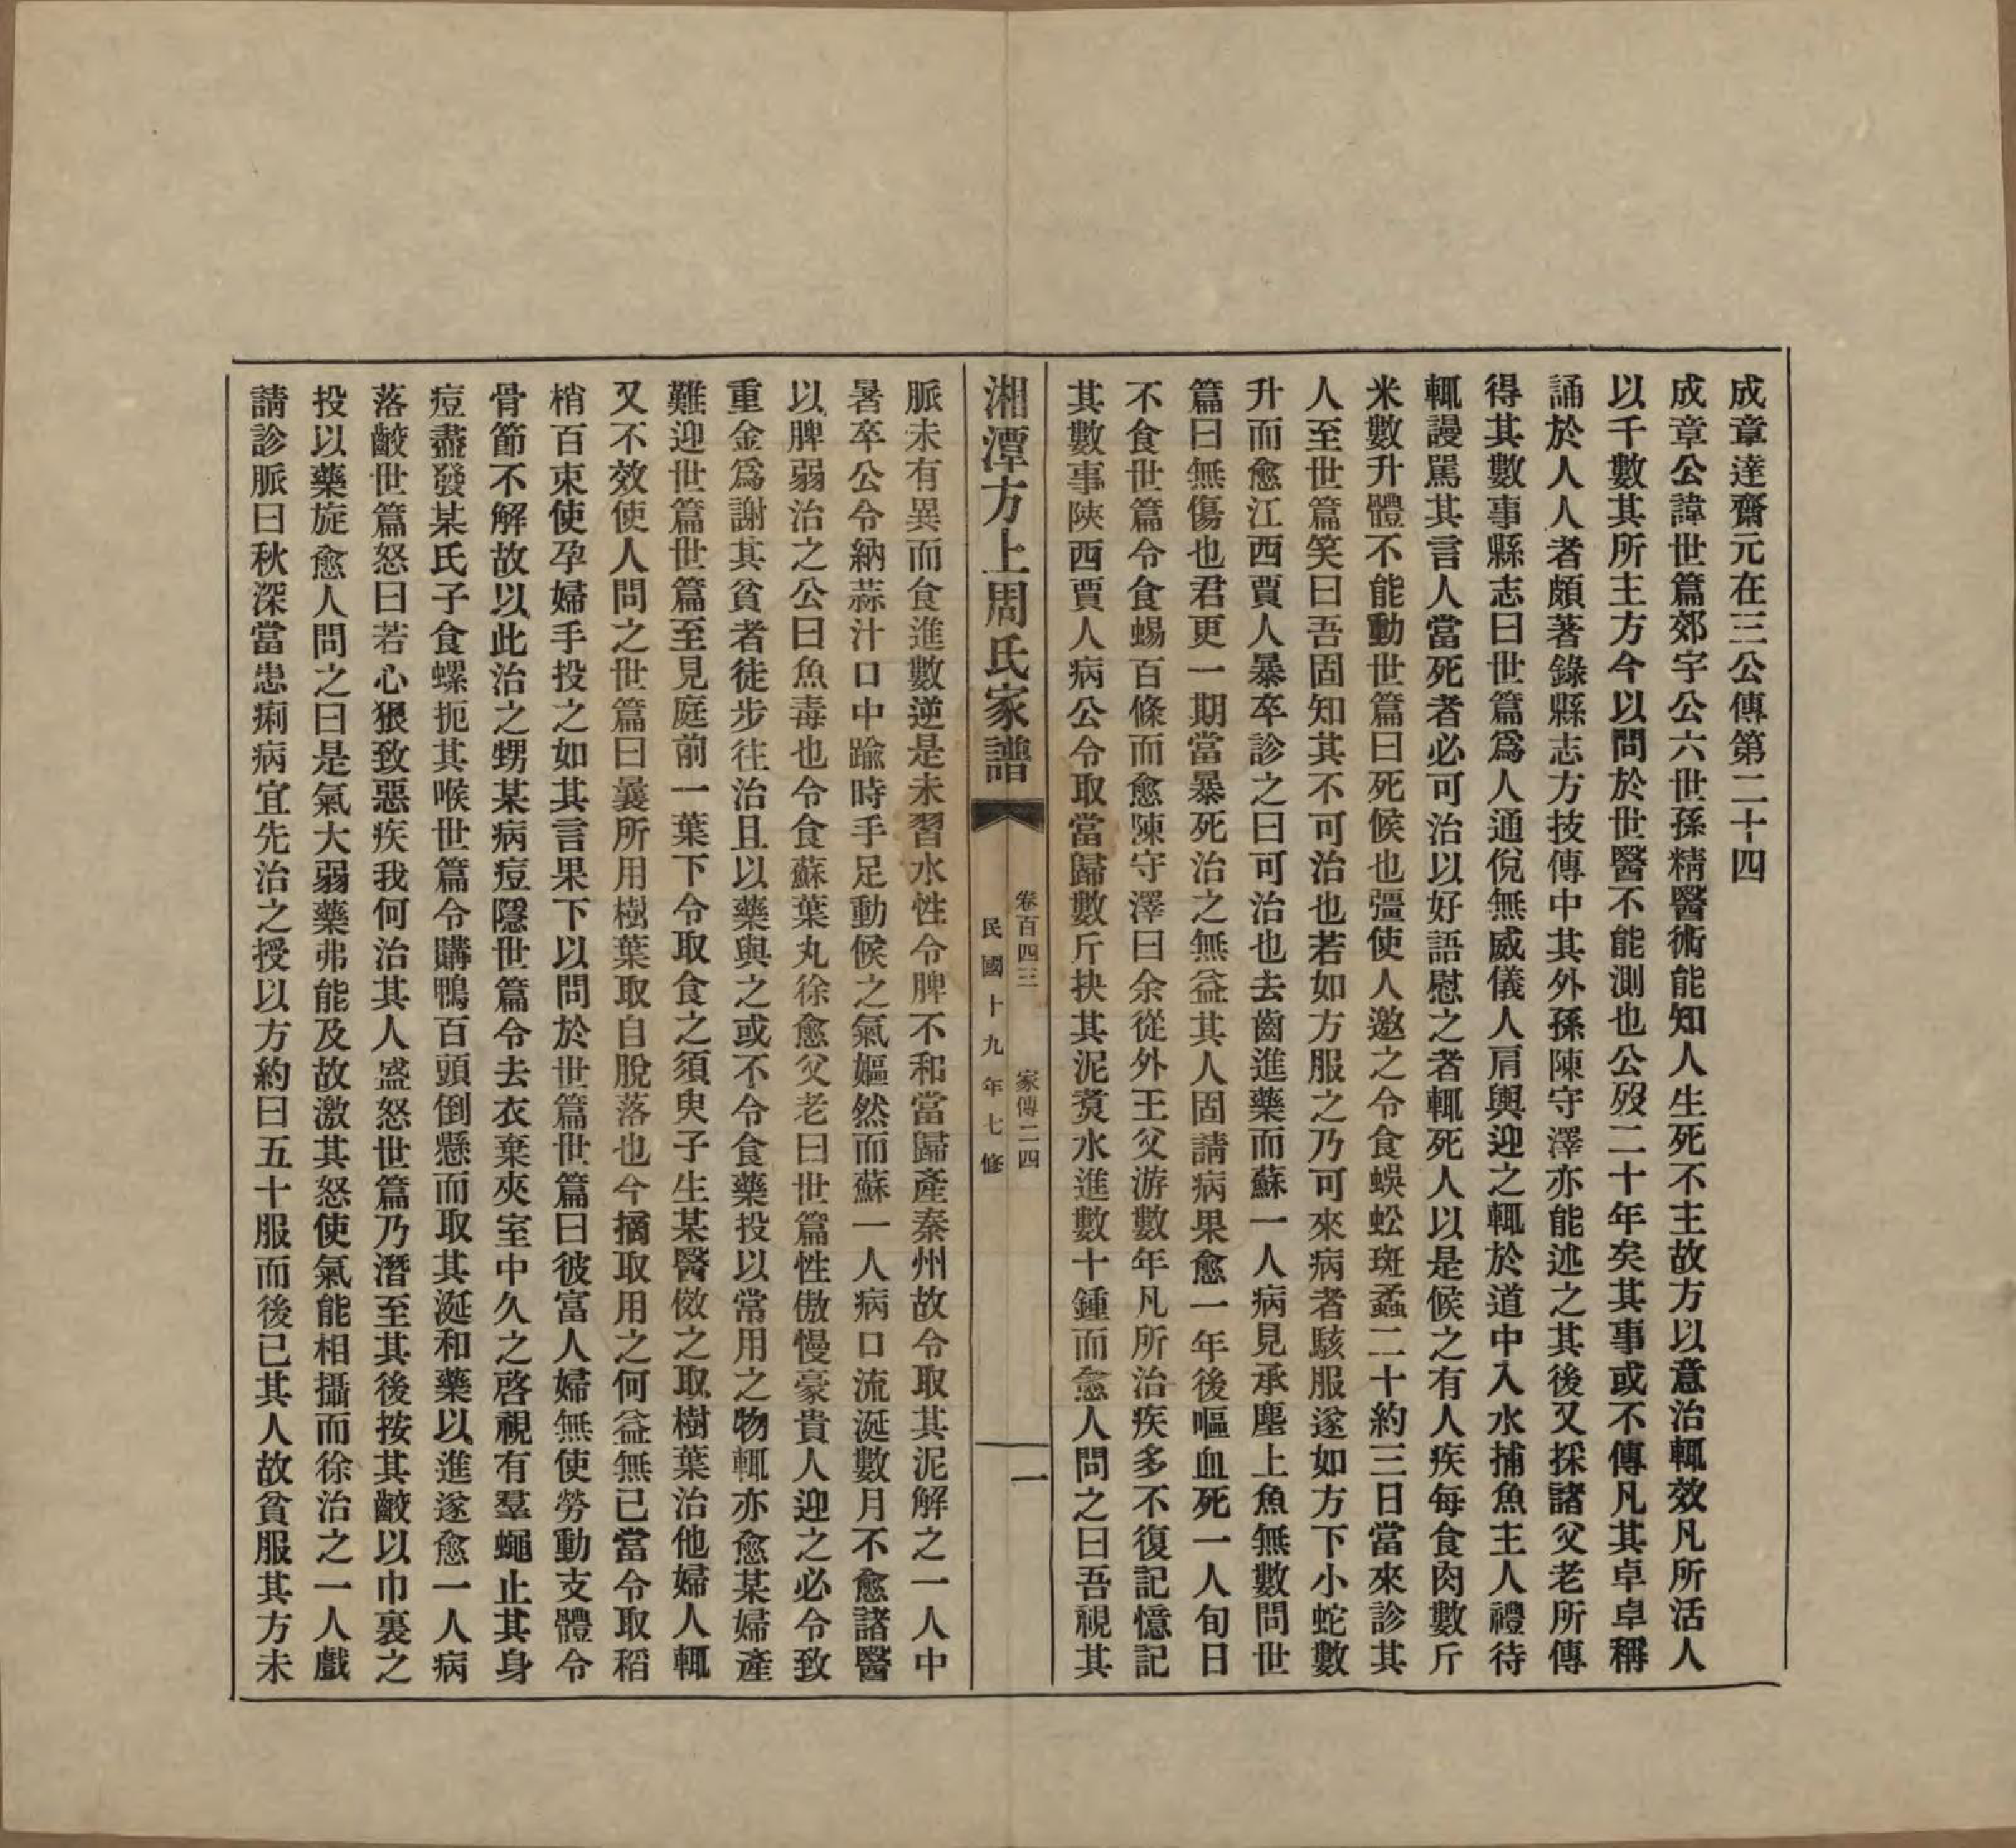 成章達齋元在三公傳第二十四
成章公諱世篇郊字公六世孫精醫術能知人生死不主故方以意治輒效凡所活人
以千數其所主方今以問於世醫不能測也公歿二十年矣其事或不傳凡其卓卓稱
誦於人人者頗著錄縣志方技傳中其外孫陳守澤亦能述之其後又採諸父老所傳
得其數事縣志曰世篇爲人通侻無威儀人肩輿迎之輒於道中入水捕魚主人禮待
輒謾罵其言人當死者必可治以好語慰之者輒死人以是候之有人疾每食肉數斤
米數升體不能動世篇曰死候也彊使人邀之令食蜈蚣斑蝥二十約三日當來診其
人至世篇笑曰吾固知其不可治也若如方服之乃可來病者駭服遂如方下小蛇數
升而愈江西賈人暴卒診之曰可治也去齒進藥而蘇一人病見承塵上魚無數問世
篇曰無傷也君更一期當暴死治之無益其人固請病果愈一年後嘔血死一人旬日
不食世篇令食蜴百條而愈陳守澤曰余從外王父游數年凡所治疾多不復記憶記
其數事陝西賈人病公令取當歸數斤抉其泥煑水進數十鍾而愈人問之曰吾視其
湘潭方上周氏家譜
卷百四三　家傳二四
民國十九年七修
一
脈未有異而食進數逆是未習水性令脾不和當歸產秦州故令取其泥解之一人中
暑卒公令納蒜汁口中踰時手足動候之氣嫗然而蘇一人病口流涎數月不愈諸醫
以脾弱治之公曰魚毒也令食蘇葉丸徐愈父老曰世篇性傲慢豪貴人迎之必令致
重金爲謝其貧者徒步往治且以藥與之或不令食藥投以常用之物輒亦愈某婦產
難迎世篇世篇至見庭前一葉下令取食之須臾子生某醫傚之取樹葉治他婦人輒
又不效使人問之世篇曰曩所用樹葉取自脫落也今摘取用之何益無已當令取稻
梢百束使孕婦手投之如其言果下以問於世篇世篇曰彼富人婦無使勞動支體令
骨節不解故以此治之甥某病痘隱世篇令去衣棄夾室中久之啓視有羣蠅止其身
痘盡發某氏子食螺扼其喉世篇令購鴨百頭倒懸而取其涎和藥以進遂愈一人病
落齩世篇怒曰若心狠致惡疾我何治其人盛怒世篇乃潛至其後按其齩以巾裹之
投以藥旋愈人問之曰是氣大弱藥弗能及故激其怒使氣能相攝而徐治之一人戲
請診脈曰秋深當患痢病宜先治之授以方約曰五十服而後已其人故貧服其方未